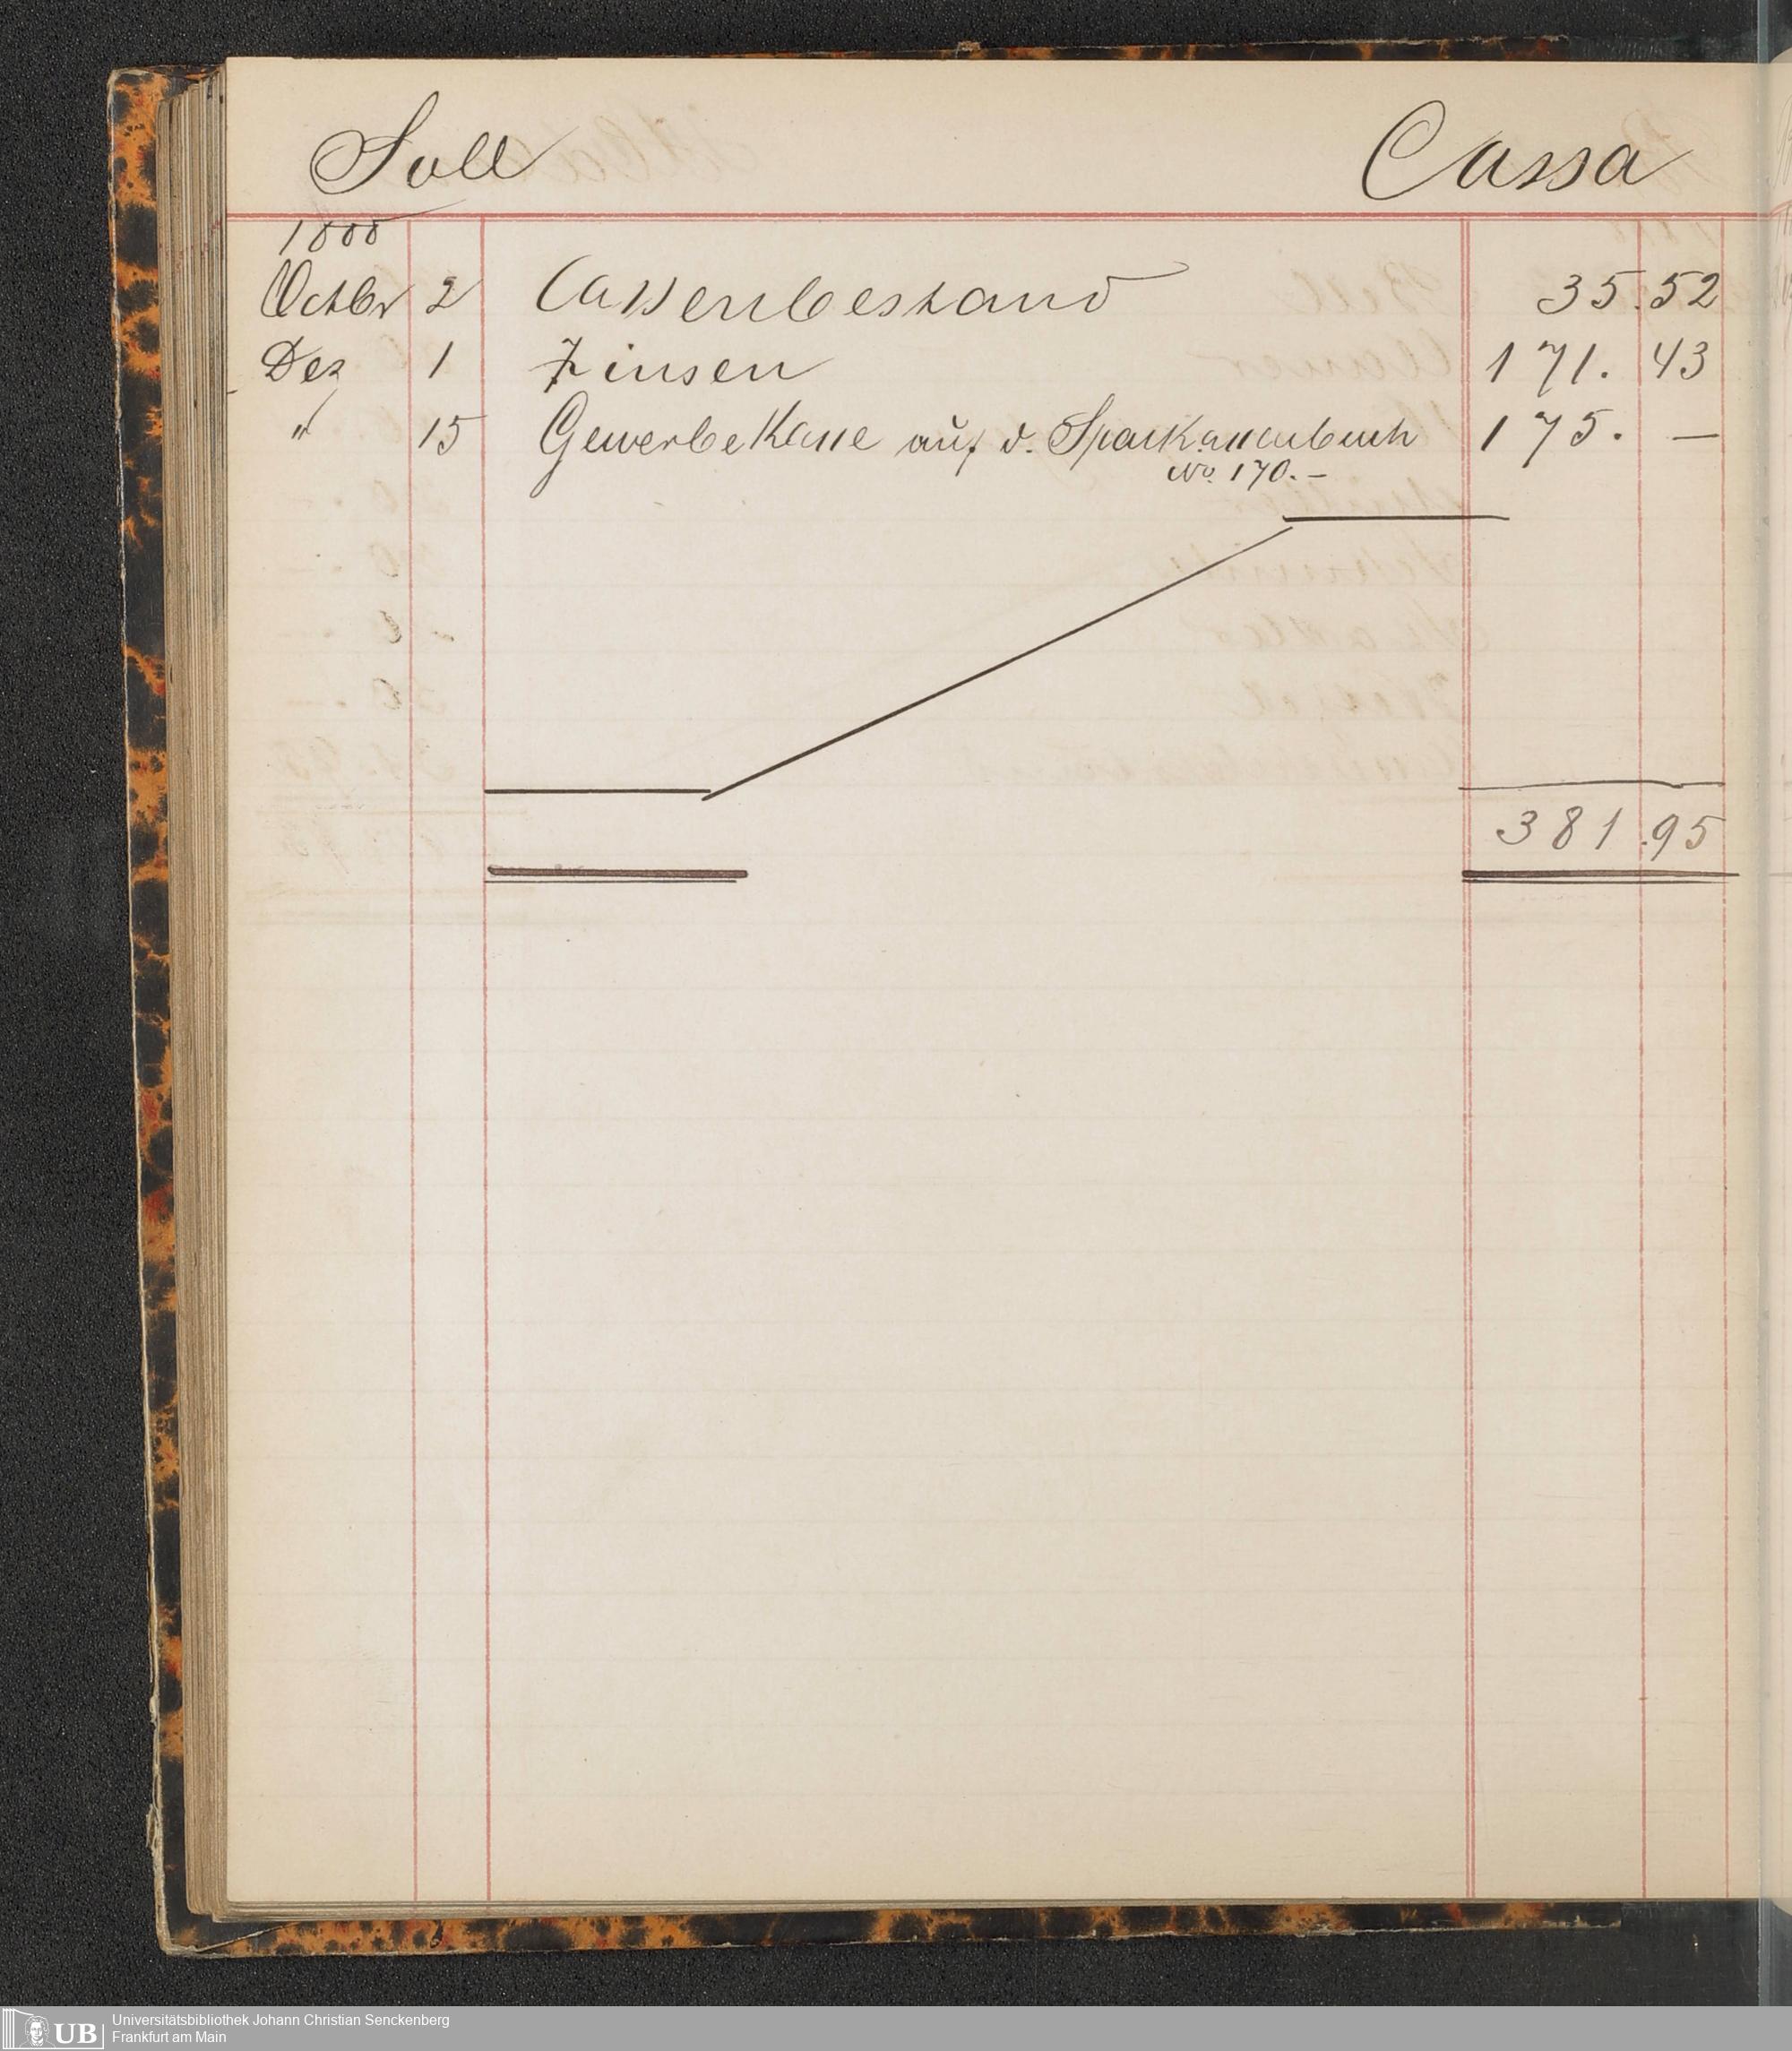 Soll Cassa
1888
Octbr 2 Cassenbestand 35.52
Dez 1 Zinsen 171.43
" 15 GewerbeKasse auf d. Sparkassenbuch 175.—
No. 170.—
381.95
Universitätsbibliothek Johann Christian Senckenberg
Frankfurt am Main
UB